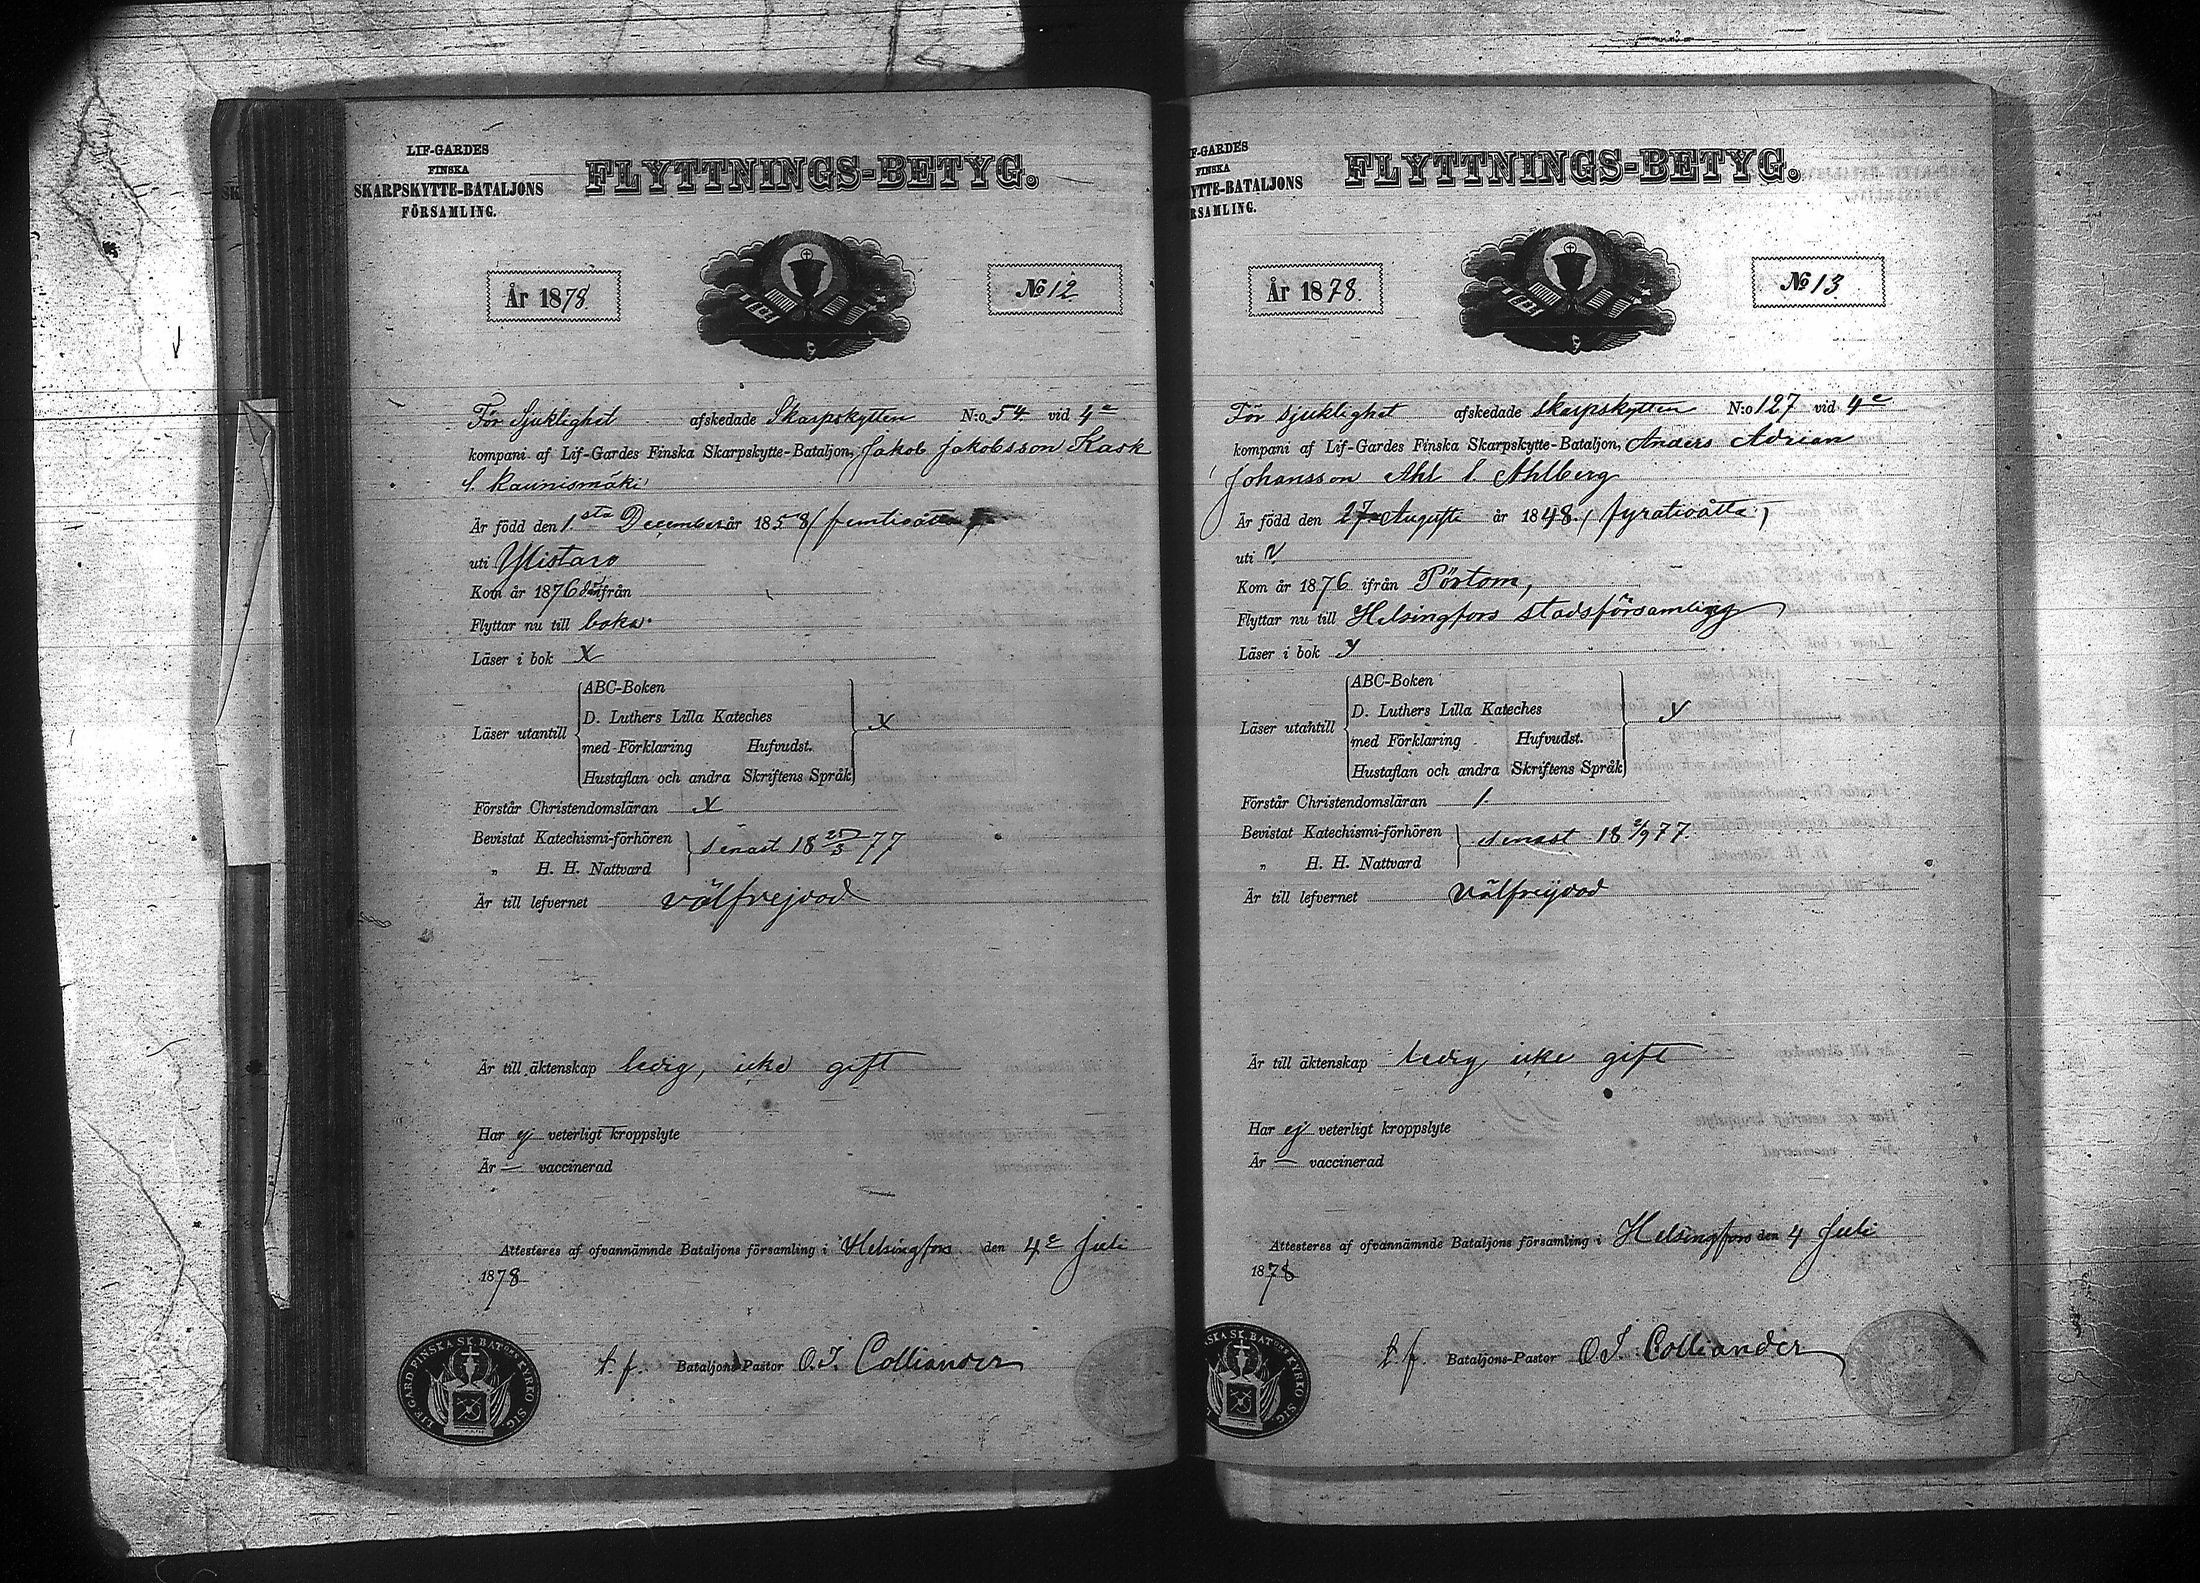 LIF-GARDES
FINSKA
SKARPSKYTTE-BATALJONS
FÖRSAMLING.
FLYTTNINGS-BETYG.
År 1878.
No 12
För Sjuklighet afskedade Skarpskytten N:o 54 vid 4e
kompani af Lif-Gardes Finska Skarpskytte-Bataljon, Jakob Jakobsson Kask
l. Kaunismäki
Är född den 1sta December år 1858 (femtioåtta)
uti Ylistaro
Kom år 1876 ifrån
Flyttar nu till
Läser i bok X
Läser utantill
ABC-Boken
D. Luthers Lilla Kateches
med Förklaring Hufvudst.
Hustaflan och andra Skriftens Språk
X
Förstår Christendomsläran X
Bevistat Katechismi-förhören
„ H. H. Nattvard
senast 18 25/3 77
Är till lefvernet välfrejdad
Är till äktenskap ledig, icke gift
Har ej veterligt kroppslyte
Är — vaccinerad
Attesteres af ofvannämnde Bataljons församling i Helsingfors den 4e Juli
1878
t. f. Bataljons-Pastor O. I. Colliander
LIF GARD FINSKA SK. BATONS KYRKO SIG.
F-GARDES
FINSKA
YTTE-BATALJONS
RSAMLING.
FLYTTNINGS-BETYG.
År 1878.
No 13
För sjuklighet afskedade skarpskytten N:o 127 vid 4e
kompani af Lif-Gardes Finska Skarpskytte-Bataljon, Anders Adrian
Johansson Ahl l. Ahlberg
Är född den 27 Augusti år 1848. (fyratioåtta)
uti
Kom år 1876 ifrån Pörtom,
Flyttar nu till Helsingfors stadsförsamling
Läser i bok y
Läser utantill
ABC-Boken
D. Luthers Lilla Kateches
med Förklaring Hufvudst.
Hustaflan och andra Skriftens Språk
y
Förstår Christendomsläran 1.
Bevistat Katechismi-förhören
„ H. H. Nattvard
senast 18 2/9 77.
Är till lefvernet välfreijdad
Är till äktenskap ledig icke gift
Har ej veterligt kroppslyte
Är — vaccinerad
Attesteres af ofvannämnde Bataljons församling i Helsingfors den 4 Juli
1878
t. f. Bataljons-Pastor O. I. Colliander
SKA SK. BATONS KYRKO SIG.